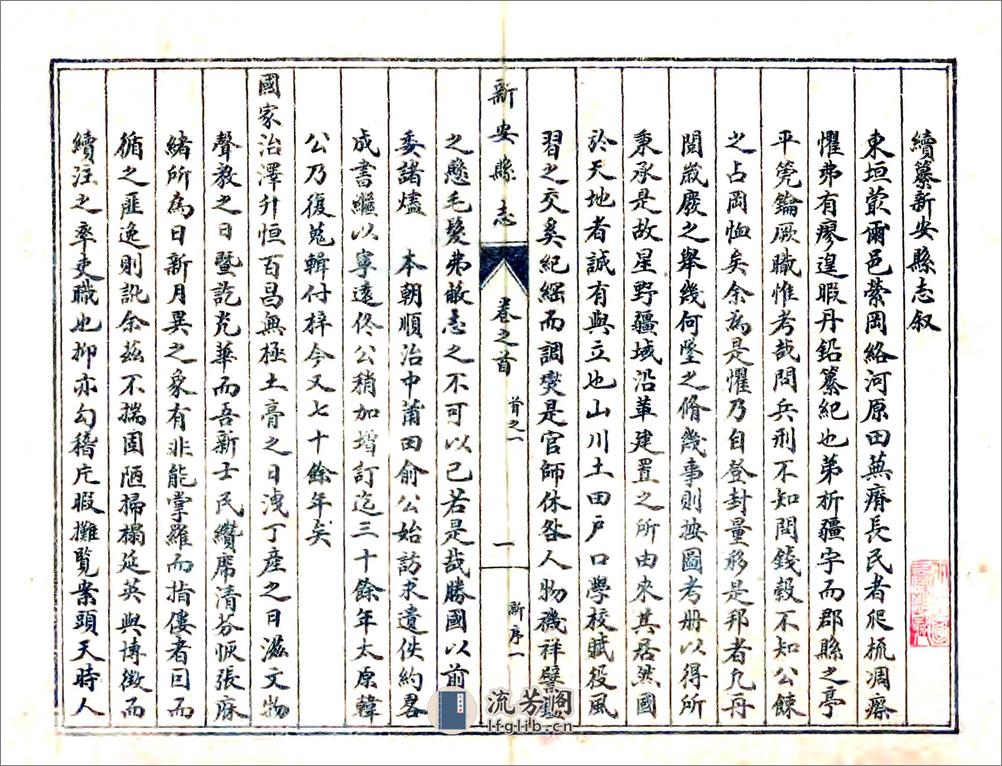 續纂新安縣志叙
東垣蕞爾邑縈岡絡河原田蕪瘠長民者爬梳凋瘵
懼弗有廖遑暇丹鉛纂紀也弟析疆宇而郡縣之亭
平筦鑰厥職惟考哉問兵刑不知問錢穀不知公餗
之占岡恤矣余為是懼乃自登封量移是邦者九再
閲嵗廢之舉幾何墜之脩幾事則按圖考册以得所
秉承是故星野疆域沿革建置之所由來其居然國
於天地者誠有與立也山川土田戶口學校賦役風
習之交奚紀綱而調爕是官師休咎人物磯祥
新安縣志
卷之首
首之一
一
新序一
之懸毛髮弗敝志之不可以已若是哉勝國以前
委諸燼 本朝順治中莆田俞公始訪求遺佚約畧
成書繼以寧遠佟公稍加增訂迄三十餘年太原韓
公乃復蒐輯付梓今又七十餘年矣
國家治澤升恒百昌無極土膏之日洩丁產之日滋文物
聲教之日曁訖光華而吾新士民纘席清芬恢張庥
緒所為日新月異之象有非能掌羅而指僂者囙而
循之匪逸則訛余茲不揣固陋掃榻延英與博徵而
續注之率吏職也抑亦勾稽片暇攤覧案頭天時人
流芳阁
lfglib.cn